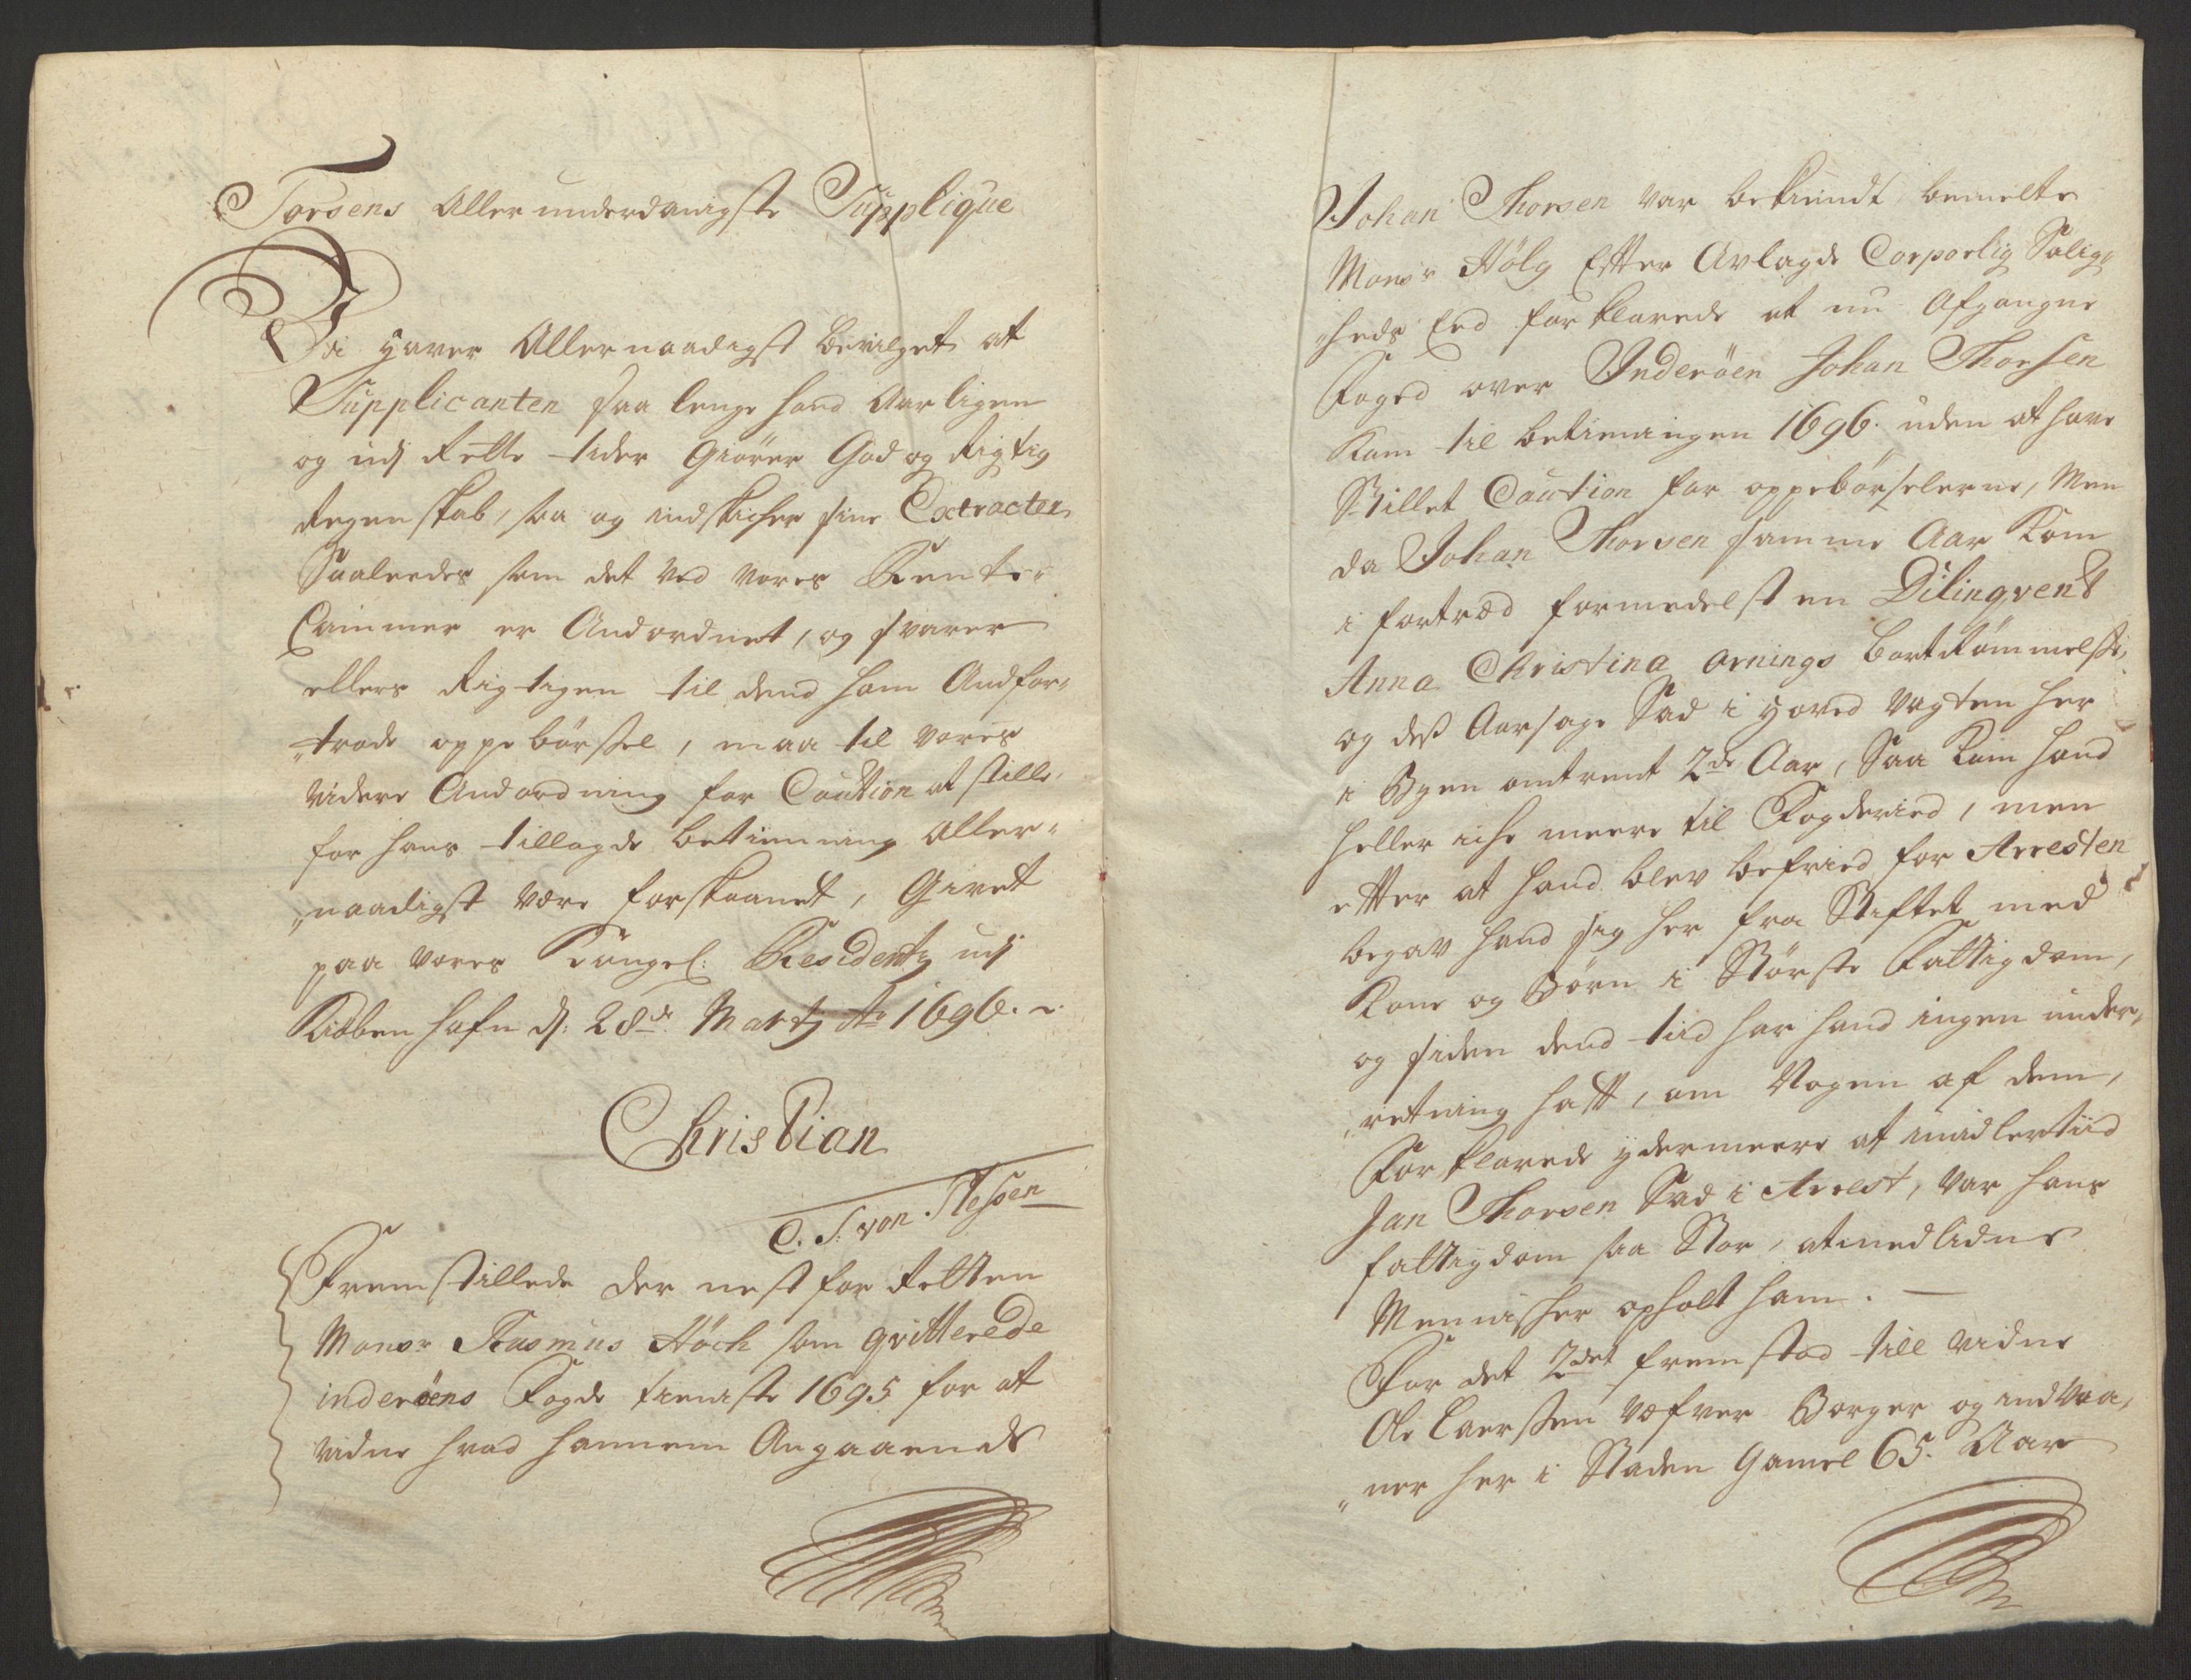 Torsens Allerunderdanigste Supplique
Vi haver Allernaadigst bevilget at
Supplicanten saa lenge hand Aarligen
og udj Rette tider Giører God og Rigtig
Regenskab, saa og indskicher sine Extracter
Saaleedes som det ved vores Rente-
Cammer er Anordnet, og svarer
ellers Rigtigen til dend ham Andfor-
"trode oppebørssel, maa til vores
videre Andordning for Caution at stille,
for hans tillagde betienning aller-
"naadigst være forskaanet, Givet
paa vores Kongel: Residentz udj
Kiøbenhafn d: 28de Martz Ao 1696.
Christian
C. S. von Plessen
Fremstillede der nest for Retten
Monsr Rasmus Höch som qvitterede
inderöens Fogde tieniste 1695 for at
vidne hvad hannem Angaaende
Johan Thorsen var bekiendt, bemelte
Monsr Hölg Efter Avlagde Corporlig Salig-
"heds Eed forklarede at nu Afgangne
Foged over Inderöen Johan Thorsen
Kom til betieningen 1696. uden at have
Stillet Caution for oppebørselerne, Men
da Johan Thorsen samme Aar kom
i fortræd formedelst en Dilinqvent
Anna Christina ornings bortRømmelse,
og des Aarsage Sad i hoved vagten her
i Byen omtrent 2de Aar, Saa kom hand
heller iche meere til Fogderied, men
etter at hand blev befried for Arresten
begav hand sig her fra Stiftet med
Kone og Børn i Største Fattigdom,
og siden dend tiid har hand ingen under-
"retning hafft, om Nogen af dem,
Forklarede ydermeere at imidlertiid
Jan Thorsen Sad i Arrest, var hans
fattigdom saa Stor, at medlidne
Mennisker opholt ham. —
For det 2det fremstod till vidne
Ole Laerssen væfver Borger og indvaa-
"ner her i Staden Gamel 65. Aar